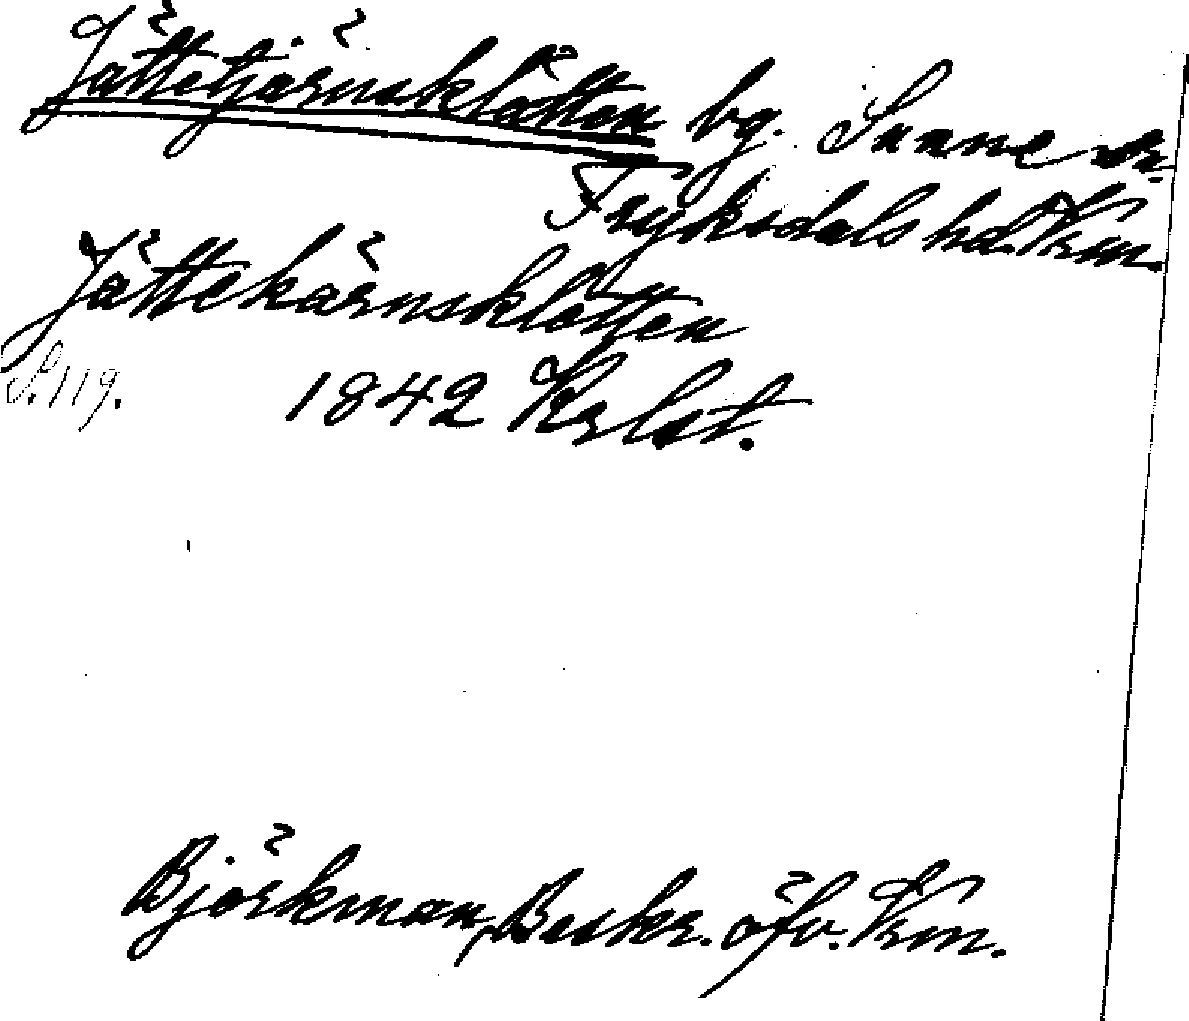 Jättetjärnsklätten bg. Sunne sn.
Fryksdals hd. Vrm.
Jättekärnsklätten
S. 119. 1842 Krlst.
Björkman, Beskr. öfv. Vrm.